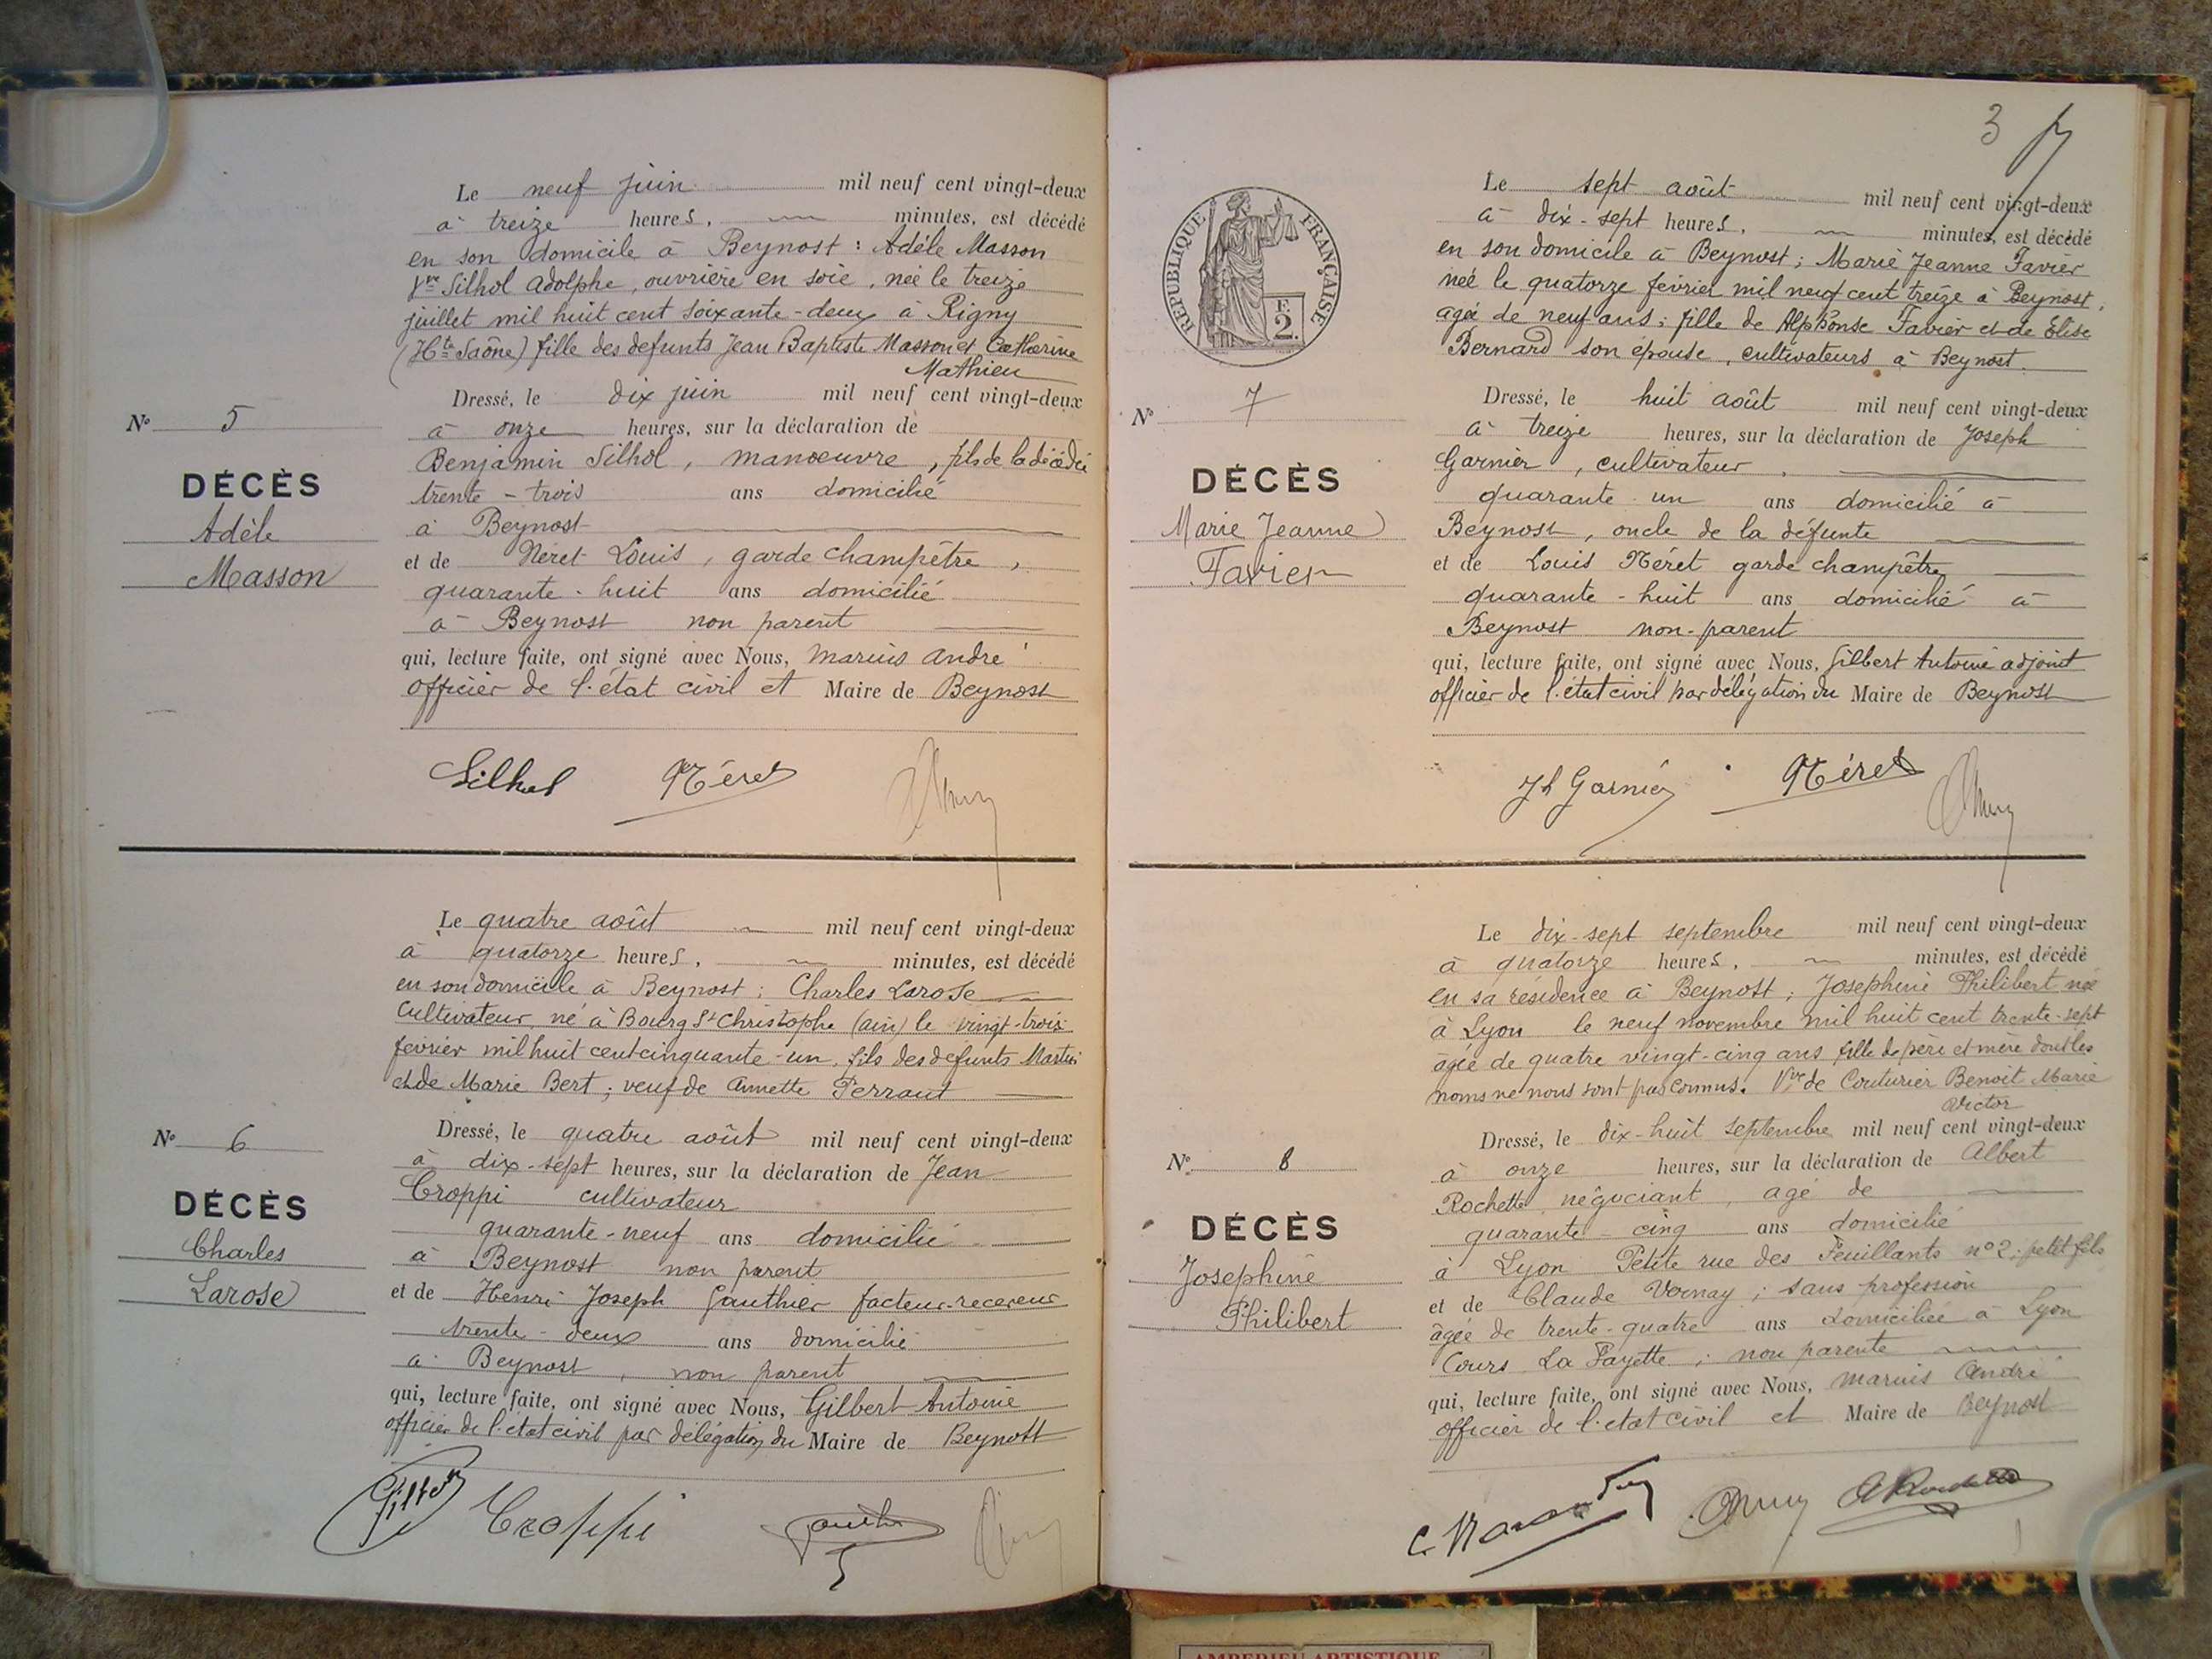 Le neuf juin mil neuf cent vingt-deux
à treize heures, minutes, est décédé
en son domicile à Beynost : Adèle Masson
Vve Silhol Adolphe, ouvrière en soie, née le treize
juillet mil huit cent soixante-deux à Rigny
(Hte Saône) fille des defunts Jean Baptiste Masson et Catherine
Mathieu
Dressé, le dix juin mil neuf cent vingt-deux
à onze heures, sur la déclaration de
Benjamin Silhol, manœuvre, fils de la décédée
trente-trois ans domicilié
à Beynost
et de Néret Louis, garde champêtre,
quarante-huit ans domicilié
à Beynost non parent
qui, lecture faite, ont signé avec Nous, Marius André
officier de l'état civil et Maire de Beynost
No 5
DÉCÈS
Adèle
Masson
Silhol Néret
Le quatre août mil neuf cent vingt-deux
à quatorze heures, minutes, est décédé
en son domicile à Beynost ; Charles Larose
Cultivateur, né à Bourg St Christophe (Ain) le vingt-trois
février mil huit cent cinquante-un, fils des defunts Martin
et de Marie Bert ; veuf de Annette Perraut
Dressé, le quatre août mil neuf cent vingt-deux
à dix-sept heures, sur la déclaration de Jean
Croppi cultivateur
quarante-neuf ans domicilié
à Beynost non parent
et de Henri Joseph Gauthier facteur-receveur
trente-deux ans domicilié
à Beynost, non parent
qui, lecture faite, ont signé avec Nous, Gilbert Antoine
officier de l'état civil par délégation du Maire de Beynost
No 6
DÉCÈS
Charles
Larose
Gilbert Croppi Gauthier
3
RÉPUBLIQUE FRANÇAISE
F.
2.
Le sept août mil neuf cent vingt-deux
à dix-sept heures, minutes, est décédé
en son domicile à Beynost ; Marie Jeanne Favier
née le quatorze février mil neuf cent treize à Beynost,
agée de neuf ans ; fille de Alphonse Favier et de Elise
Bernard son épouse, cultivateurs à Beynost.
Dressé, le huit août mil neuf cent vingt-deux
à treize heures, sur la déclaration de Joseph
Garnier, cultivateur,
quarante un ans domicilié à
Beynost, oncle de la défunte
et de Louis Néret garde champêtre
quarante-huit ans domicilié à
Beynost non-parent
qui, lecture faite, ont signé avec Nous, Gilbert Antoine adjoint
officier de l'état civil par délégation du Maire de Beynost
No 7
DÉCÈS
Marie Jeanne
Favier
Jh Garnier Néret
Le dix-sept septembre mil neuf cent vingt-deux
à quatorze heures, minutes, est décédé
en sa résidence à Beynost ; Josephine Philibert née
à Lyon le neuf novembre mil huit cent trente-sept
âgée de quatre vingt-cinq ans fille de père et mère dont les
noms ne nous sont pas connus. Vve de Couturier Benoit Marie
Victor
Dressé, le dix-huit septembre mil neuf cent vingt-deux
à onze heures, sur la déclaration de Albert
Rochette négociant, agé de
quarante-cinq ans domicilié
à Lyon Petite rue des Feuillants no 2, petit fils
et de Claude Vernay ; sans profession
âgée de trente-quatre ans domiciliée à Lyon
Cours La Fayette ; non parente
qui, lecture faite, ont signé avec Nous, Marius André
officier de l'état civil et Maire de Beynost
No 8
DÉCÈS
Josephine
Philibert
AMBERIEU ARTISTIQUE